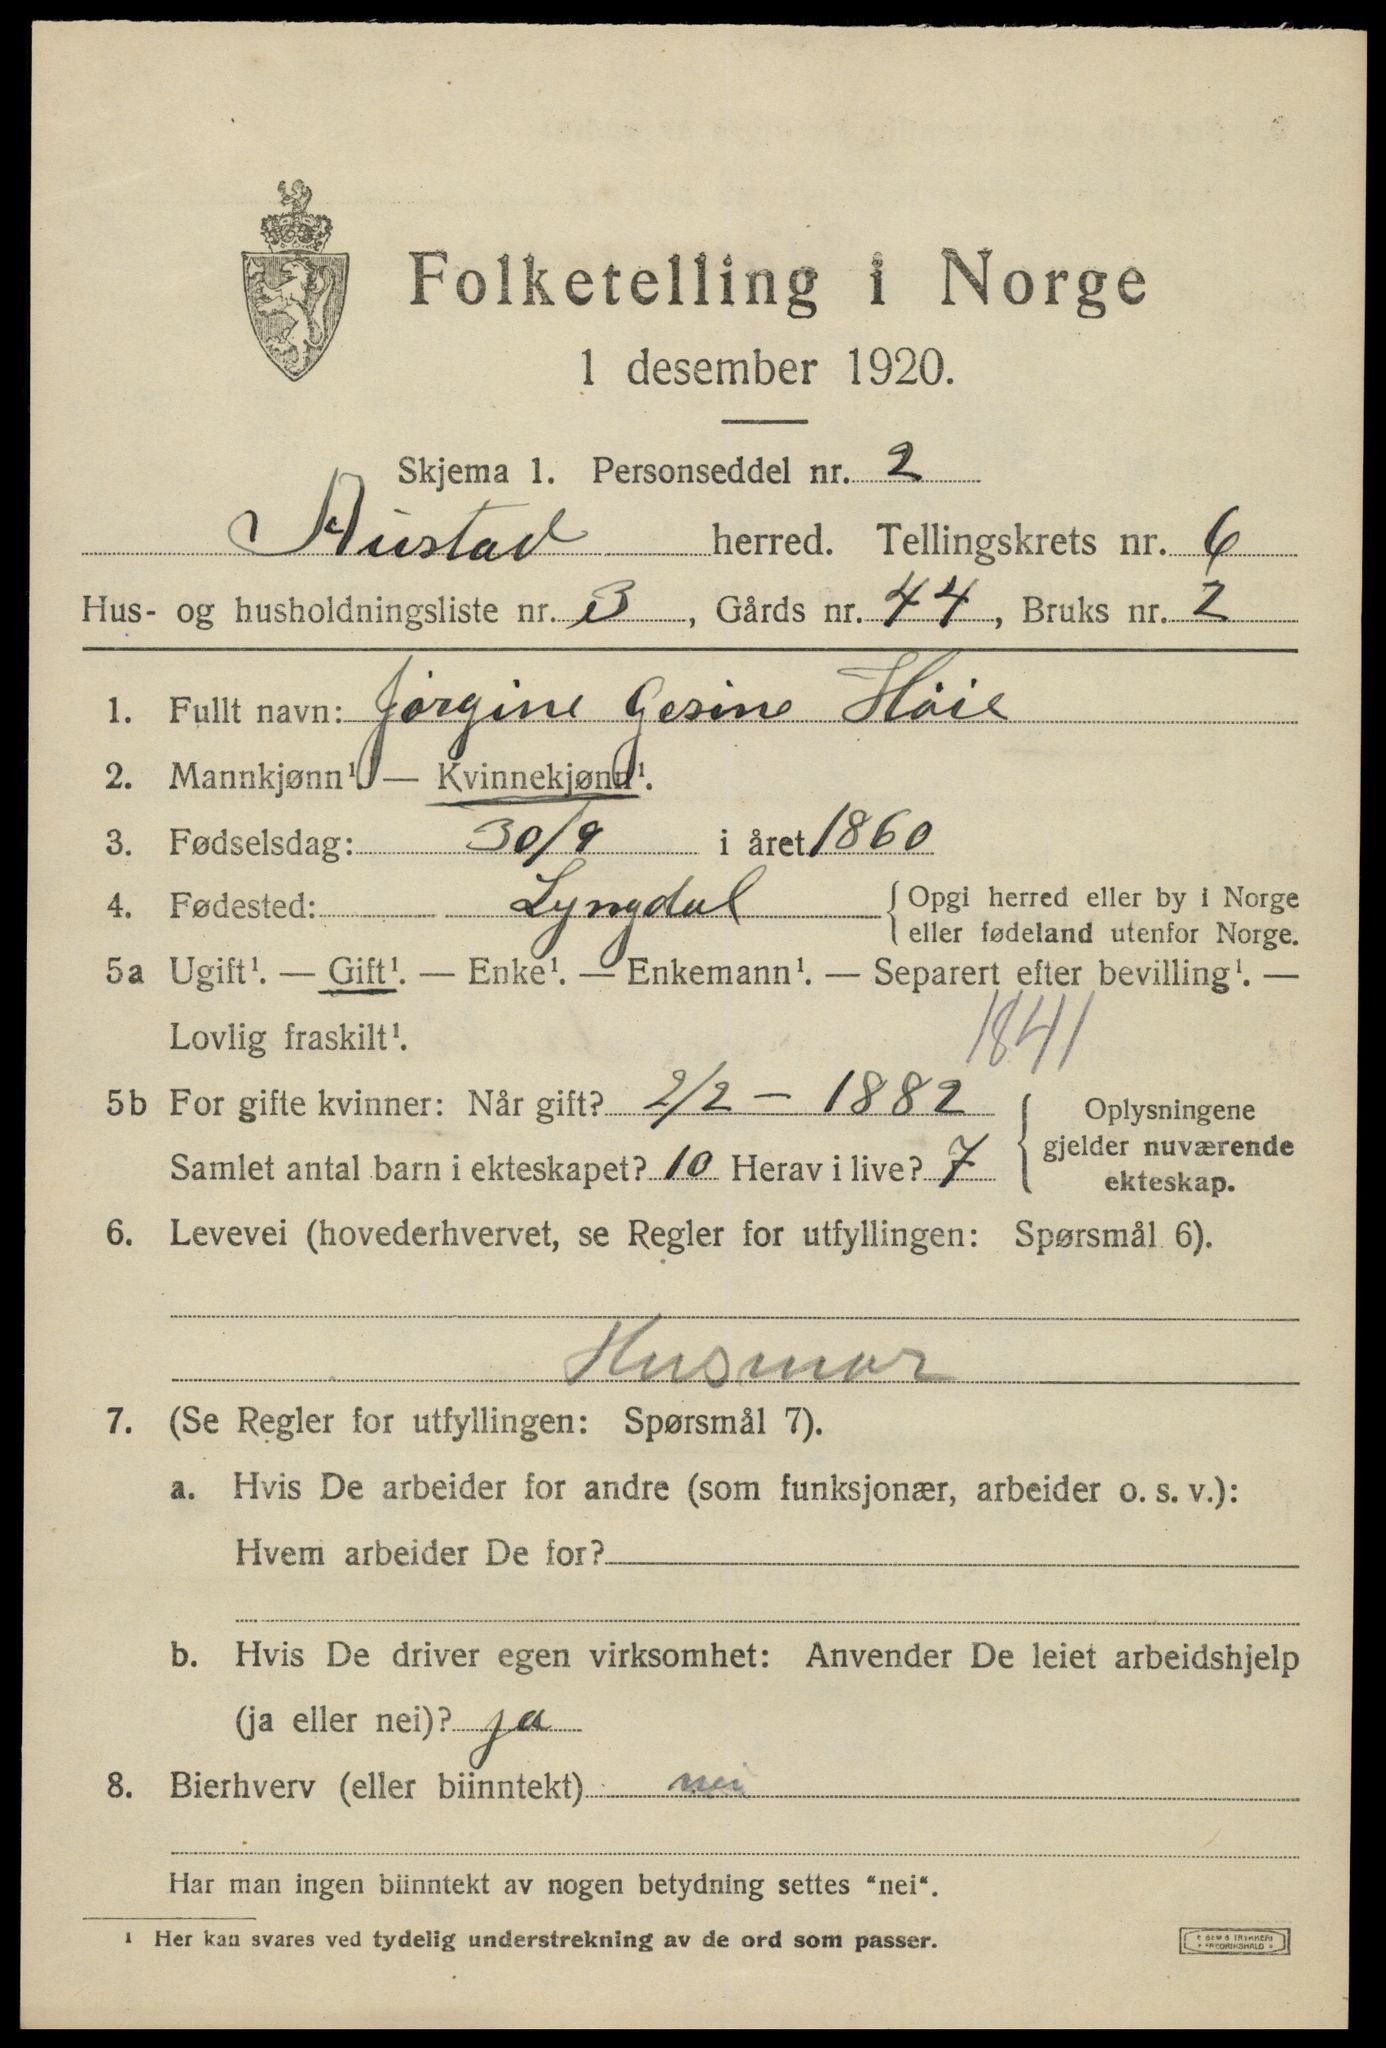 Folketelling i Norge
1 desember 1920.
Skjema 1. Personseddel nr. 2
Austad herred. Tellingskrets nr. 6
Hus- og husholdningsliste nr. 3, Gårds nr. 44, Bruks nr. 2
1. Fullt navn: Jørgine Gesine Höie
2. Mannkjønn¹. — Kvinnekjønn¹.
3. Fødselsdag: 30/9 i året 1860
4. Fødested: Lyngdal { Opgi herred eller by i Norge
eller fødeland utenfor Norge.
5a Ugift¹. — Gift¹. — Enke¹. — Enkemann¹. — Separert efter bevilling¹. —
Lovlig fraskilt¹. 1841
5b For gifte kvinner: Når gift? 2/2 – 1882 { Oplysningene
gjelder nuværende
Samlet antal barn i ekteskapet? 10 Herav i live? 7 ekteskap.
6. Levevei (hovederhvervet, se Regler for utfyllingen: Spørsmål 6).
Husmor
7. (Se Regler for utfyllingen: Spørsmål 7).
a. Hvis De arbeider for andre (som funksjonær, arbeider o. s. v.):
Hvem arbeider De for?
b. Hvis De driver egen virksomhet: Anvender De leiet arbeidshjelp
(ja eller nei)? ja
8. Bierhverv (eller biinntekt) nei
Har man ingen biinntekt av nogen betydning settes “nei“.
¹ Her kan svares ved tydelig understrekning av de ord som passer.